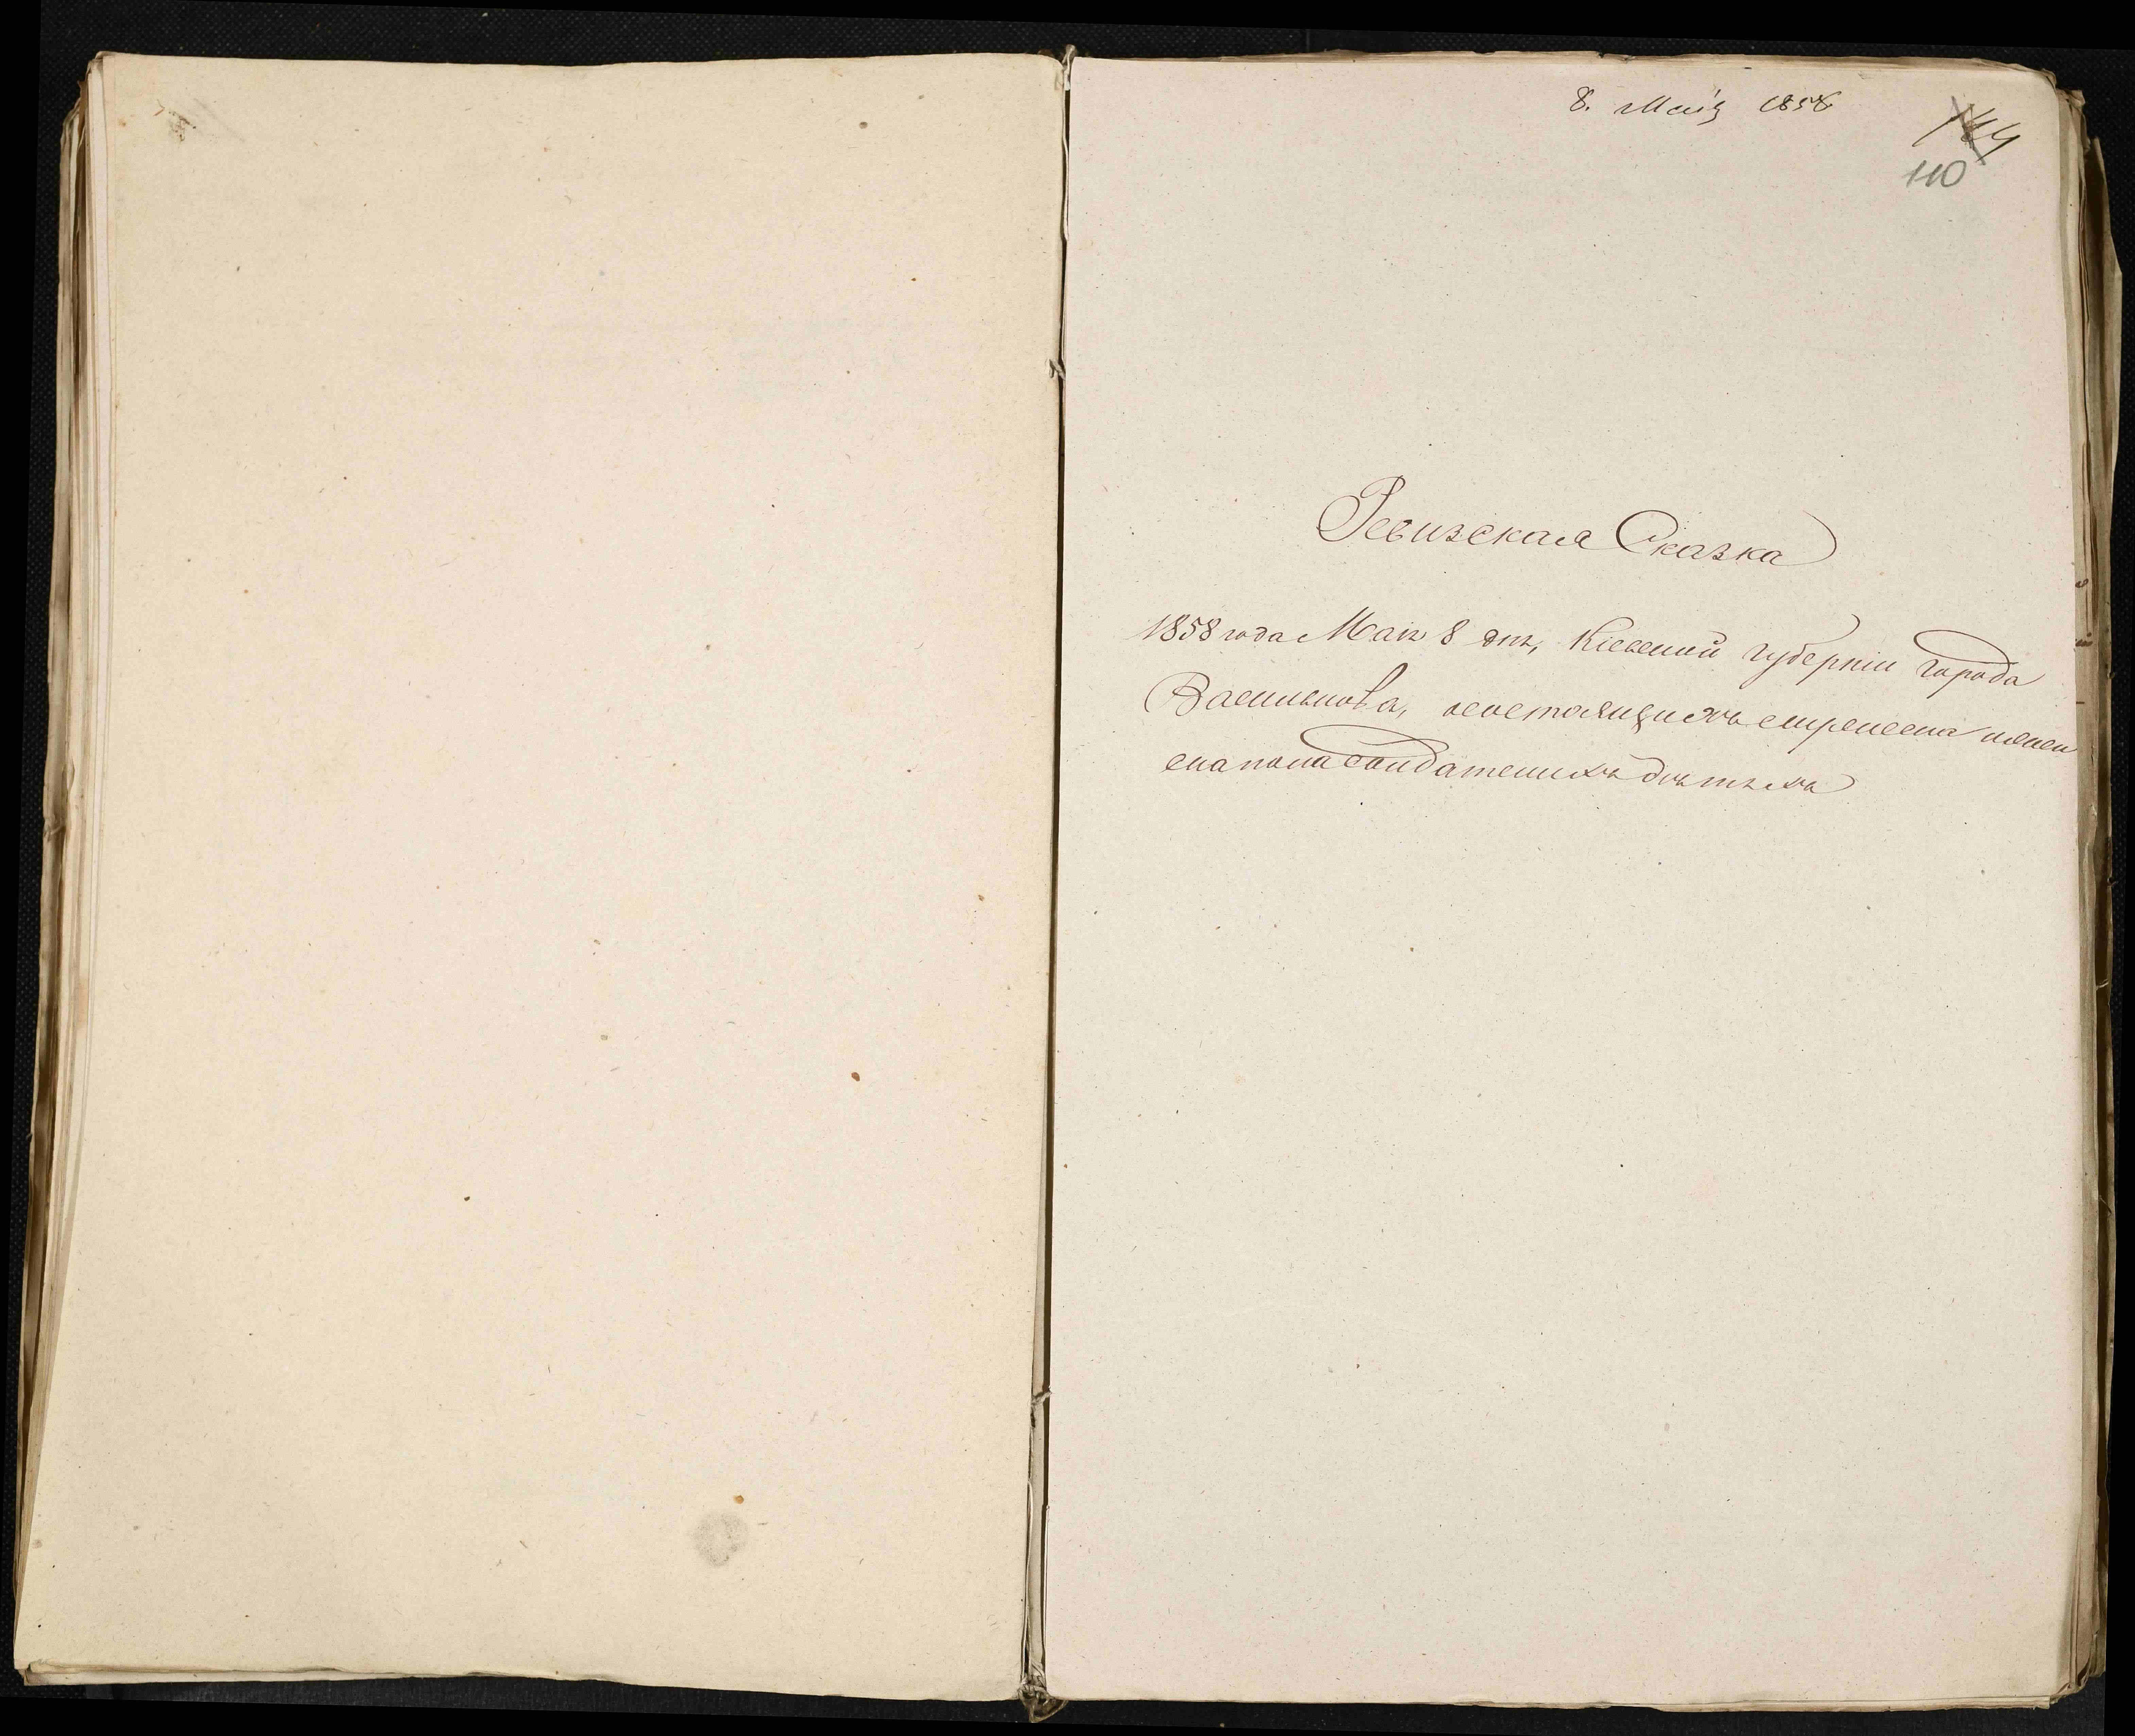 8. Маія 1858
144
110
Ревизская Сказка
1858 года Мая 8 дня, Кіевской губерніи города
Василькова, о состоящихъ еврейска женск
ска пола солдатскихъ дѣтяхъ